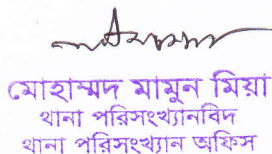 মোহাম্মদ মামুন মিয়া
থানা পরিসংখ্যানবিদ
থানা পরিসংখ্যান অফিস